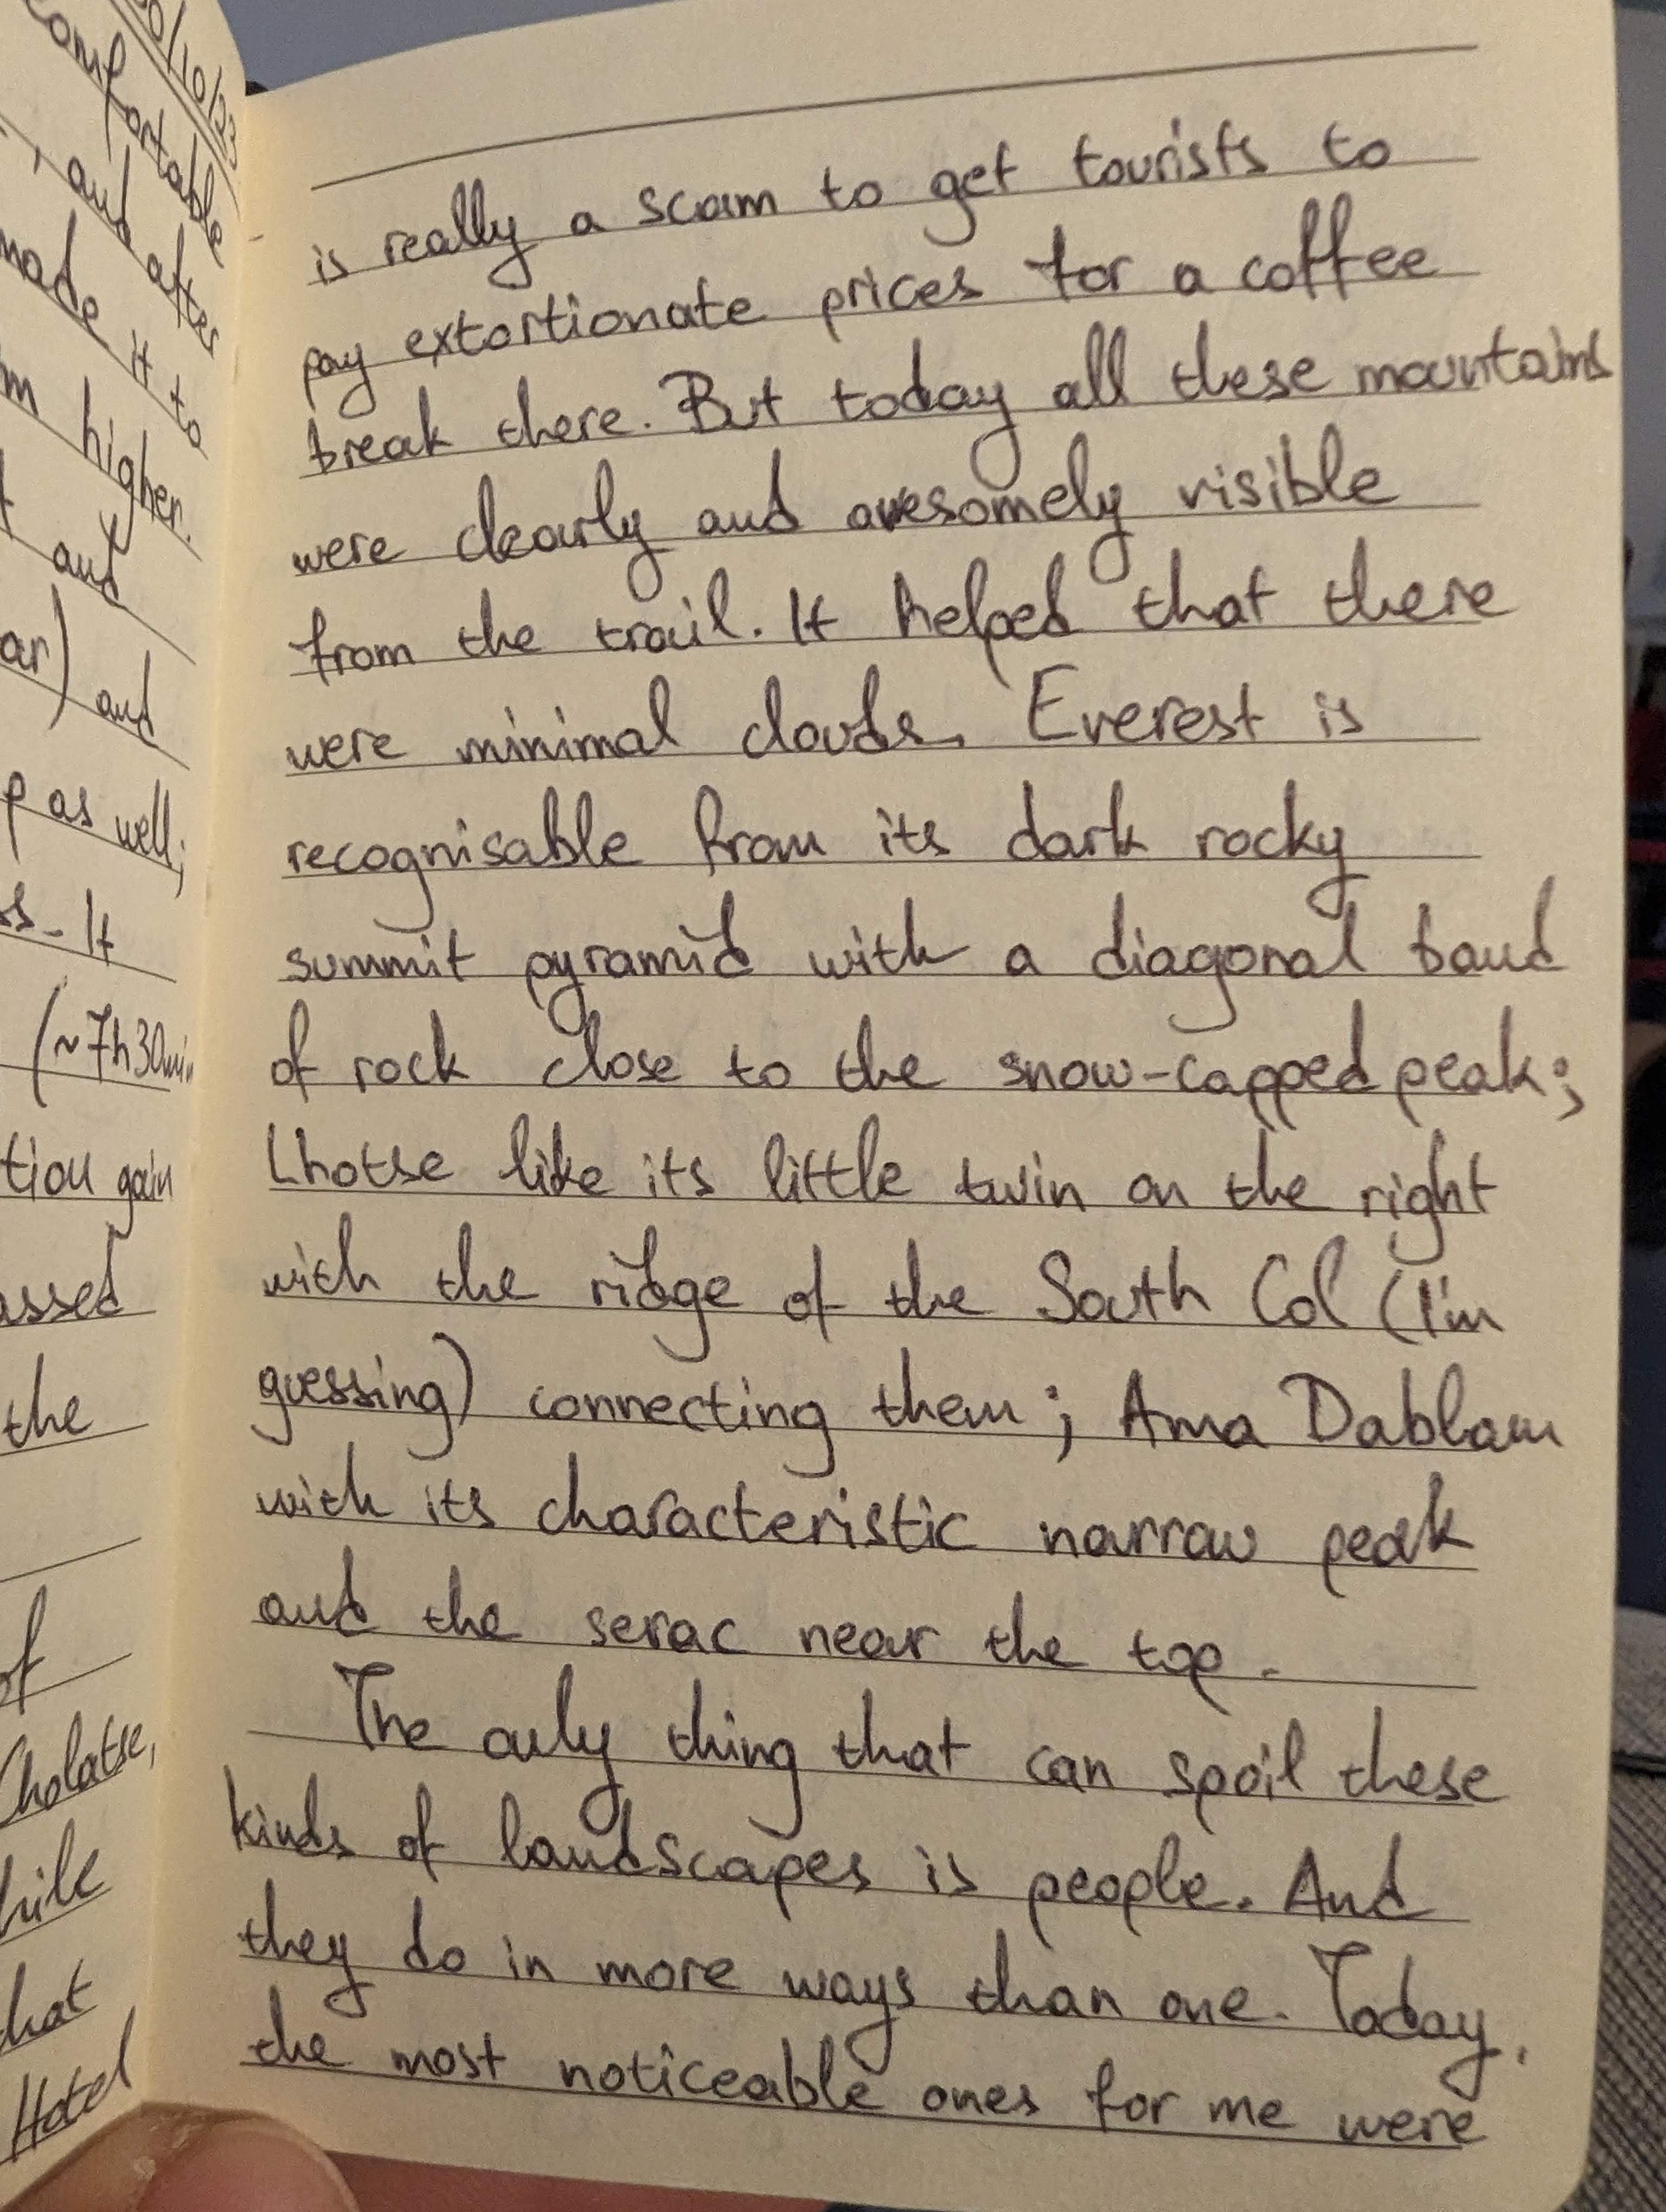 0/10/23
comfortable
, and after
made it to
m higher.
and
ar) and
p as well;
ss. It
(~7h30min
tion gain
assed
the
of
Cholatse,
hile
hat
Hotel
is really a scam to get tourists to
pay extortionate prices for a coffee
break there. But today all these mountains
were clearly and awesomely visible
from the trail. It helped that there
were minimal clouds. Everest is
recognisable from its dark rocky
summit pyramid with a diagonal band
of rock close to the snow-capped peak;
Lhotse like its little twin on the right
with the ridge of the South Col (I'm
guessing) connecting them; Ama Dablam
with its characteristic narrow peak
and the serac near the top.
The only thing that can spoil these
kinds of landscapes is people. And
they do in more ways than one. Today,
the most noticeable ones for me were